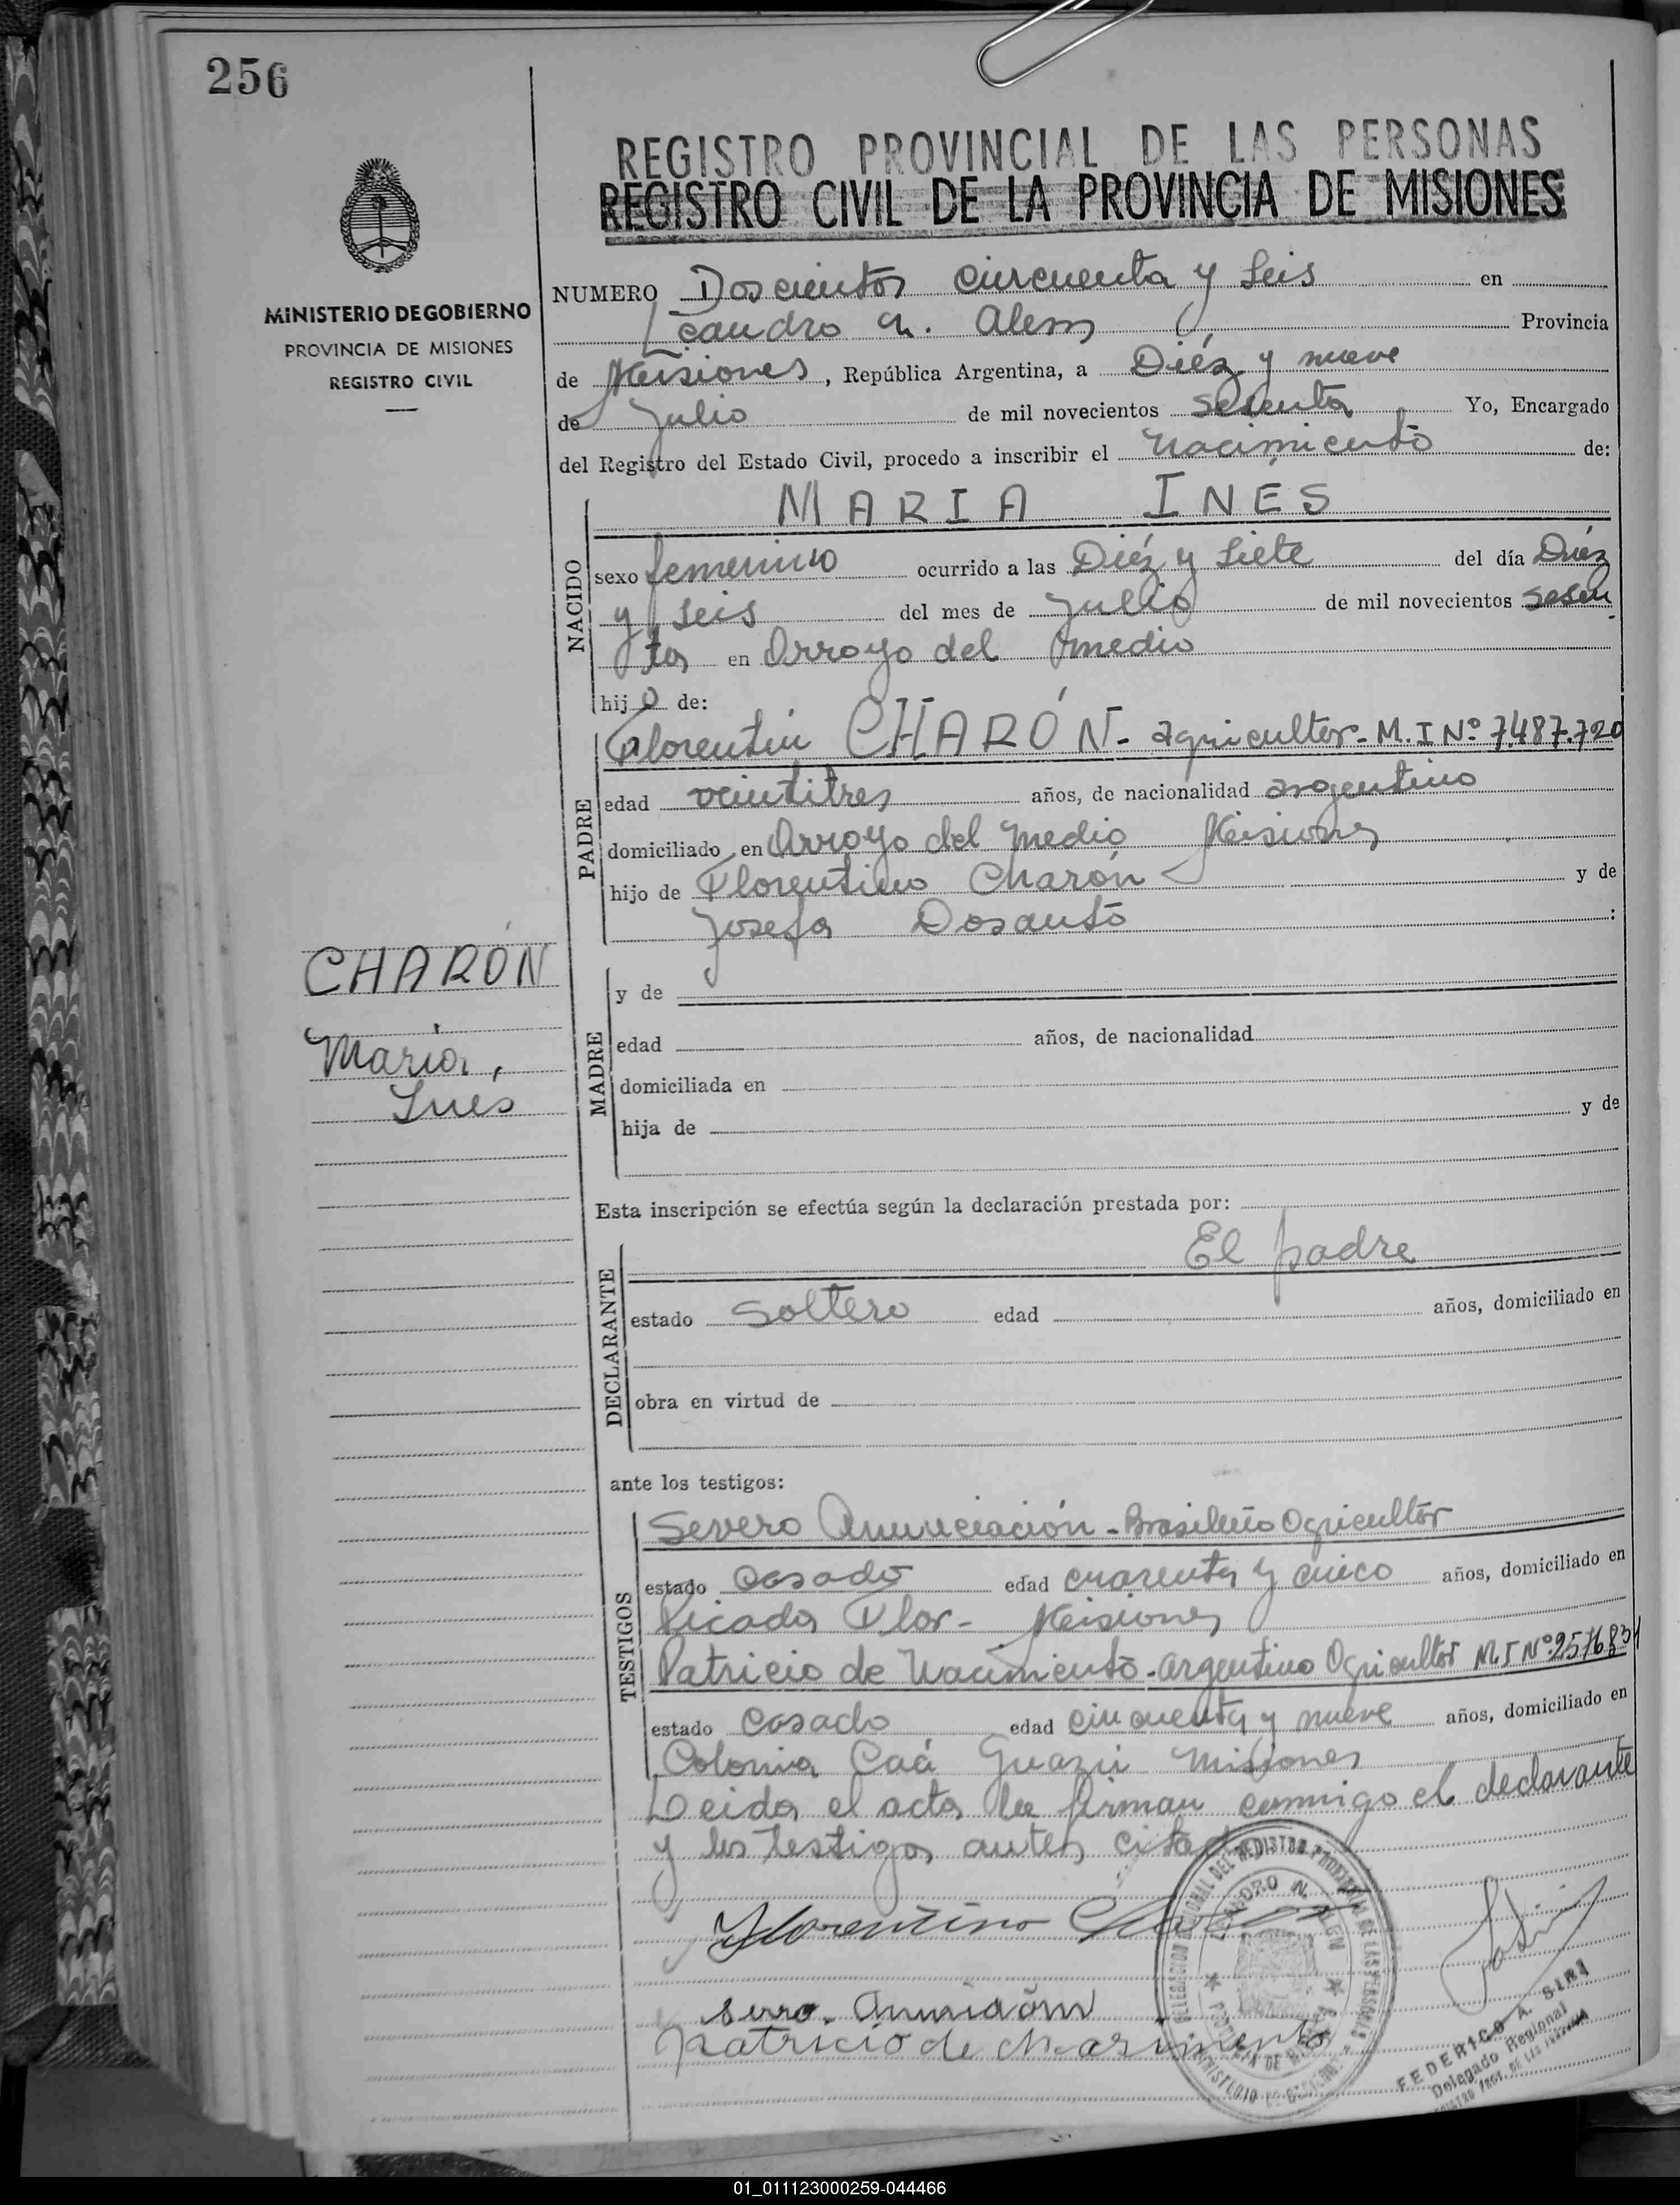 256
REGISTRO PROVINCIAL DE LAS PERSONAS
REGISTRO CIVIL DE LA PROVINCIA DE MISIONES
MINISTERIO DE GOBIERNO
PROVINCIA DE MISIONES
REGISTRO CIVIL
NUMERO Doscientos cincuenta y seis en
Leandro N. Alem Provincia
de Misiones, República Argentina, a Diéz y nueve
de Julio de mil novecientos sesenta Yo, Encargado
del Registro del Estado Civil, procedo a inscribir el Nacimiento de:
NACIDO
MARIA INES
sexo femenino ocurrido a las Diéz y Siete del día Diéz
y seis del mes de Julio de mil novecientos sesen
ta en Arroyo del medio
hijo de:
PADRE
Florentin CHARÓN - agricultor - M.I Nº 7.487.720
edad veintitres años, de nacionalidad argentino
domiciliado en Arroyo del Medio Misiones
hijo de Florentino Charón y de
Josefa Dosanto :
CHARÓN
Maria,
Ines
MADRE
y de
edad años, de nacionalidad
domiciliada en
hija de y de
Esta inscripción se efectúa según la declaración prestada por:
DECLARANTE
El padre
estado Soltero edad años, domiciliado en
obra en virtud de
ante los testigos:
TESTIGOS
Severo Anunciación - Brasileño Agricultor
estado casado edad cuarenta y cinco años, domiciliado en
Picada Flor - Misiones
Patricio de Nacimiento - argentino Agricultor M.I Nº
estado casado edad cincuenta y nueve años, domiciliado en
Colonia Caá Guazú Misiones
Leida el acta la firman conmigo el declarante
y los testigos antes citados
Florentino
Patricio de Nasimento
LEANDRO N. ALEM
FEDERICO A. SIRI
Delegado Regional
01_011123000259-044466